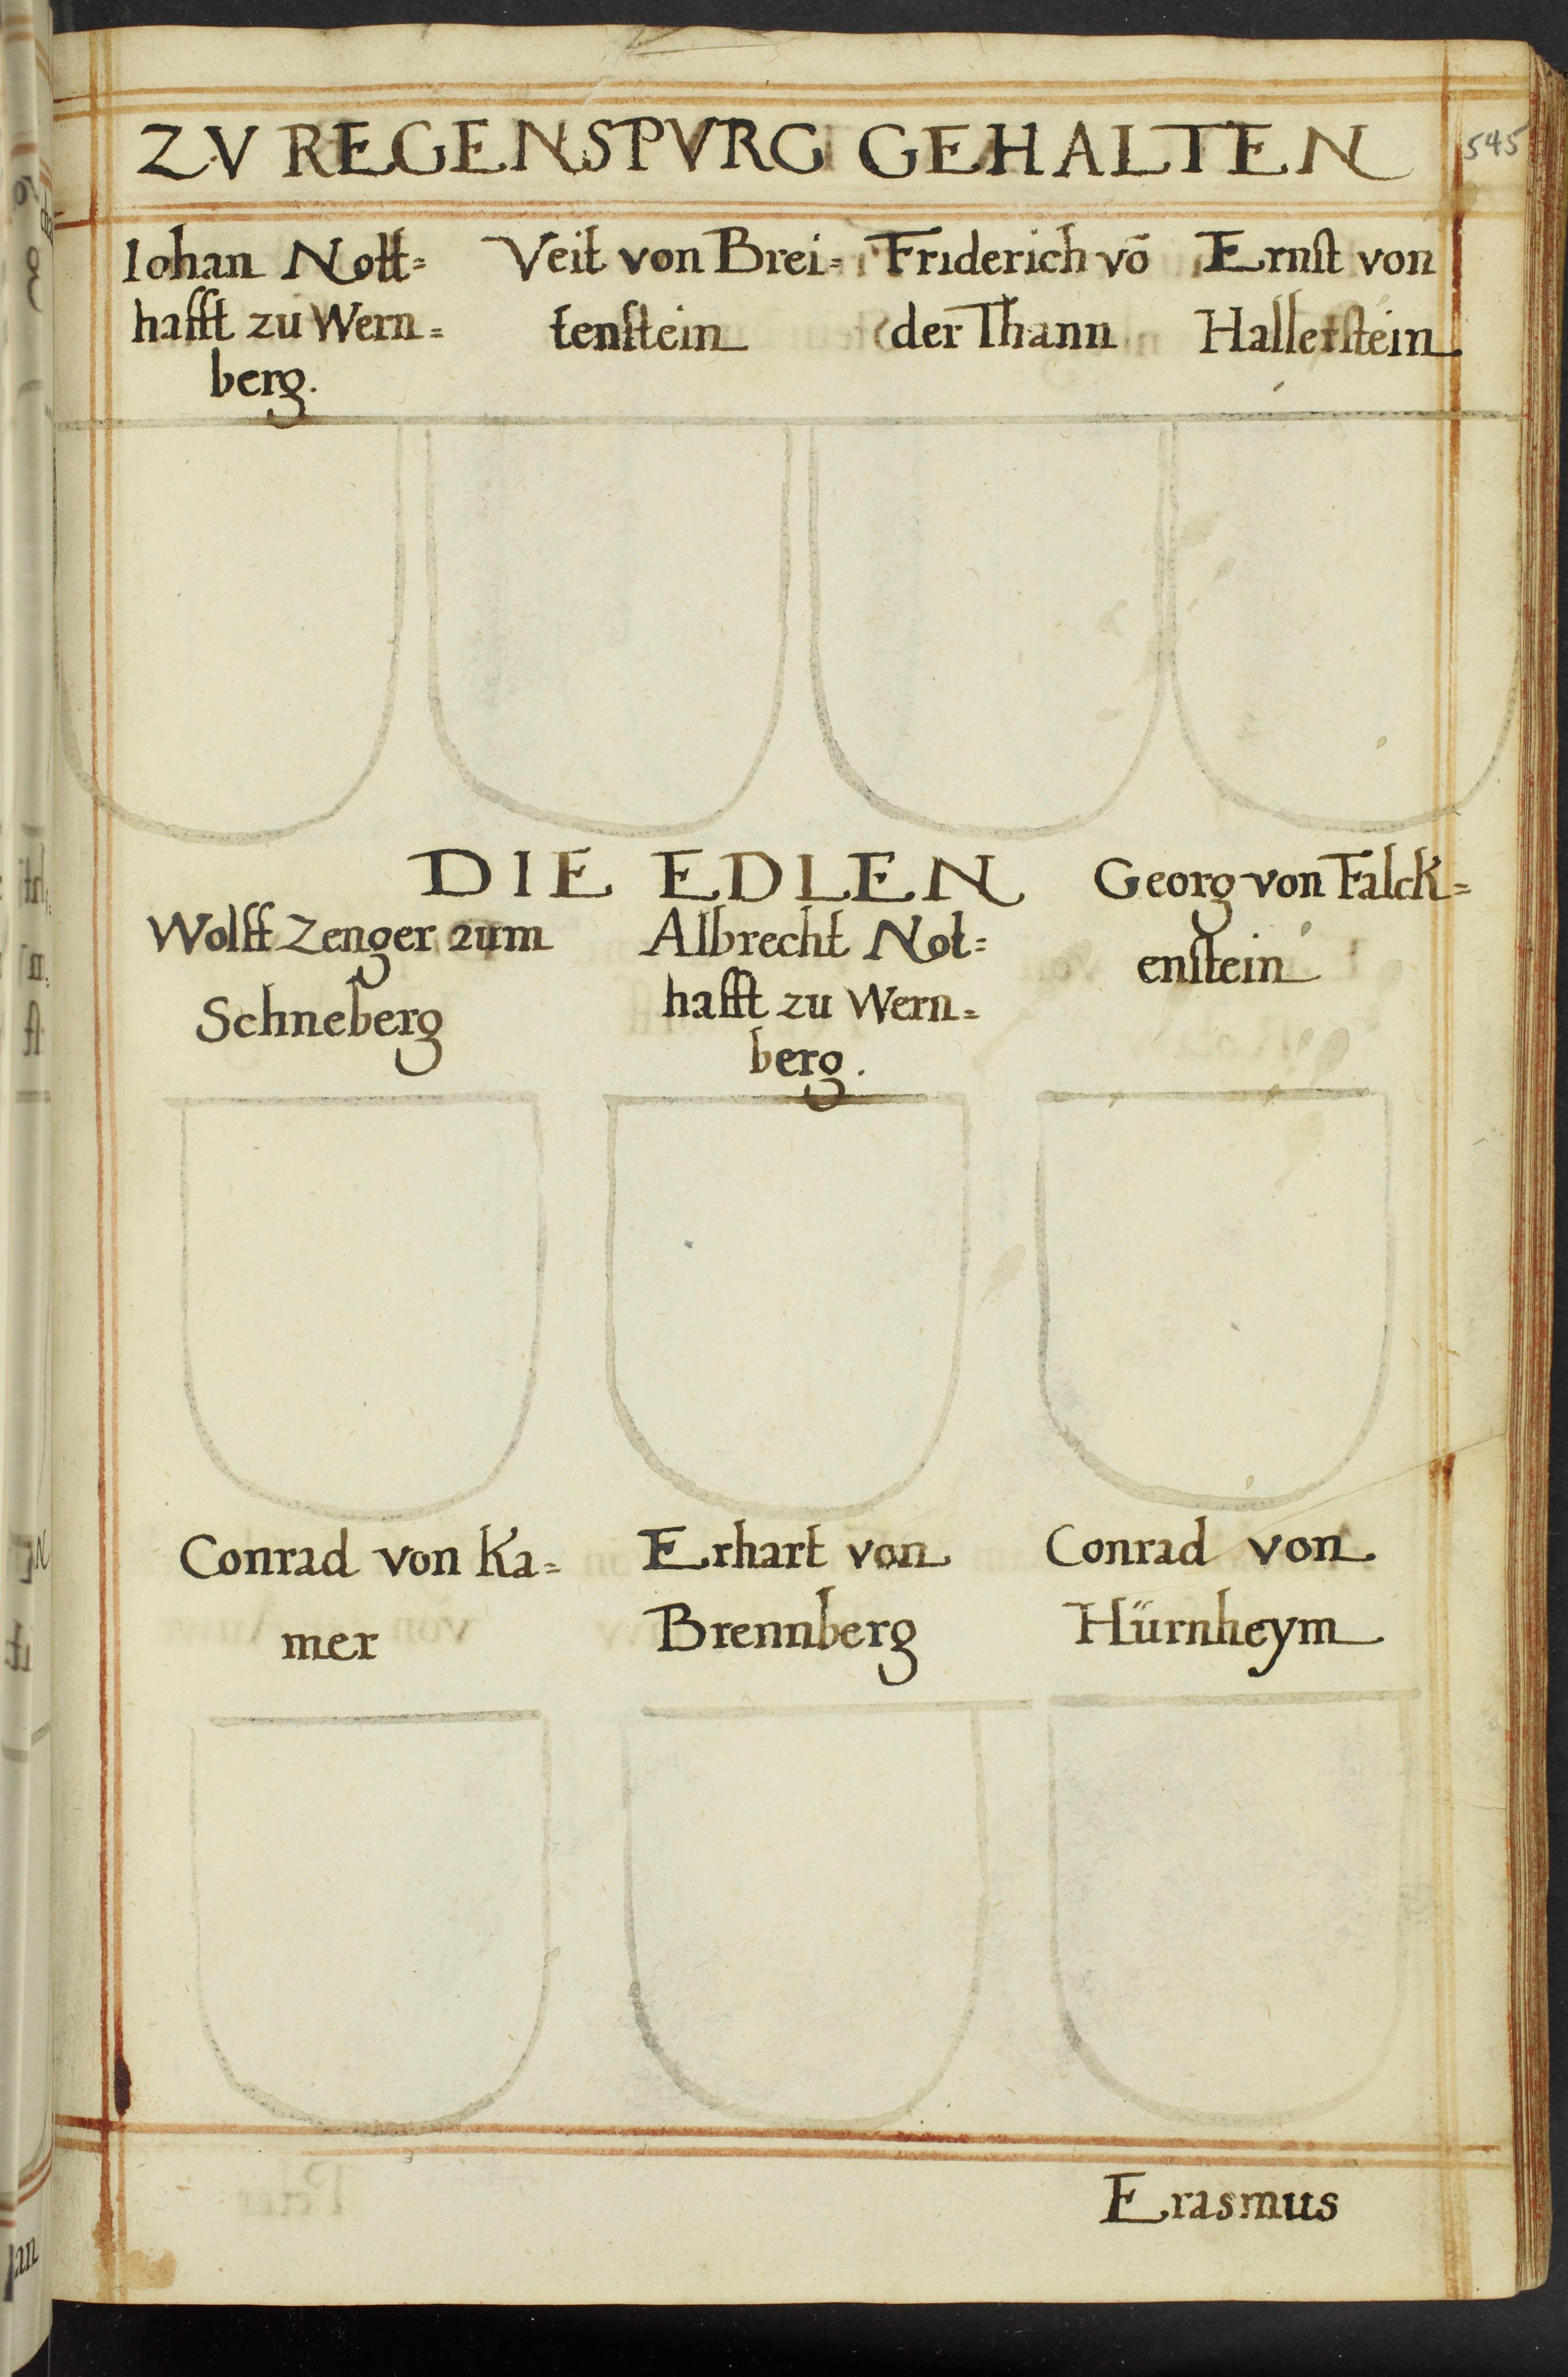 ZV REGENSPVRG GEHALTEN
545
Iohan Nott=
hafft zu Wern=
berg.
Veit von Brei=
tenstein
Friderich võ
der Thann
Ernst von
Hallerstein
DIE EDLEN
Wolff Zenger zum
Schneberg
Albrecht Not=
hafft zu Wern=
berg.
Georg von Falck=
enstein
Conrad von Ka=
mer
Erhart von
Brennberg
Conrad von
Hürnheym
Erasmus